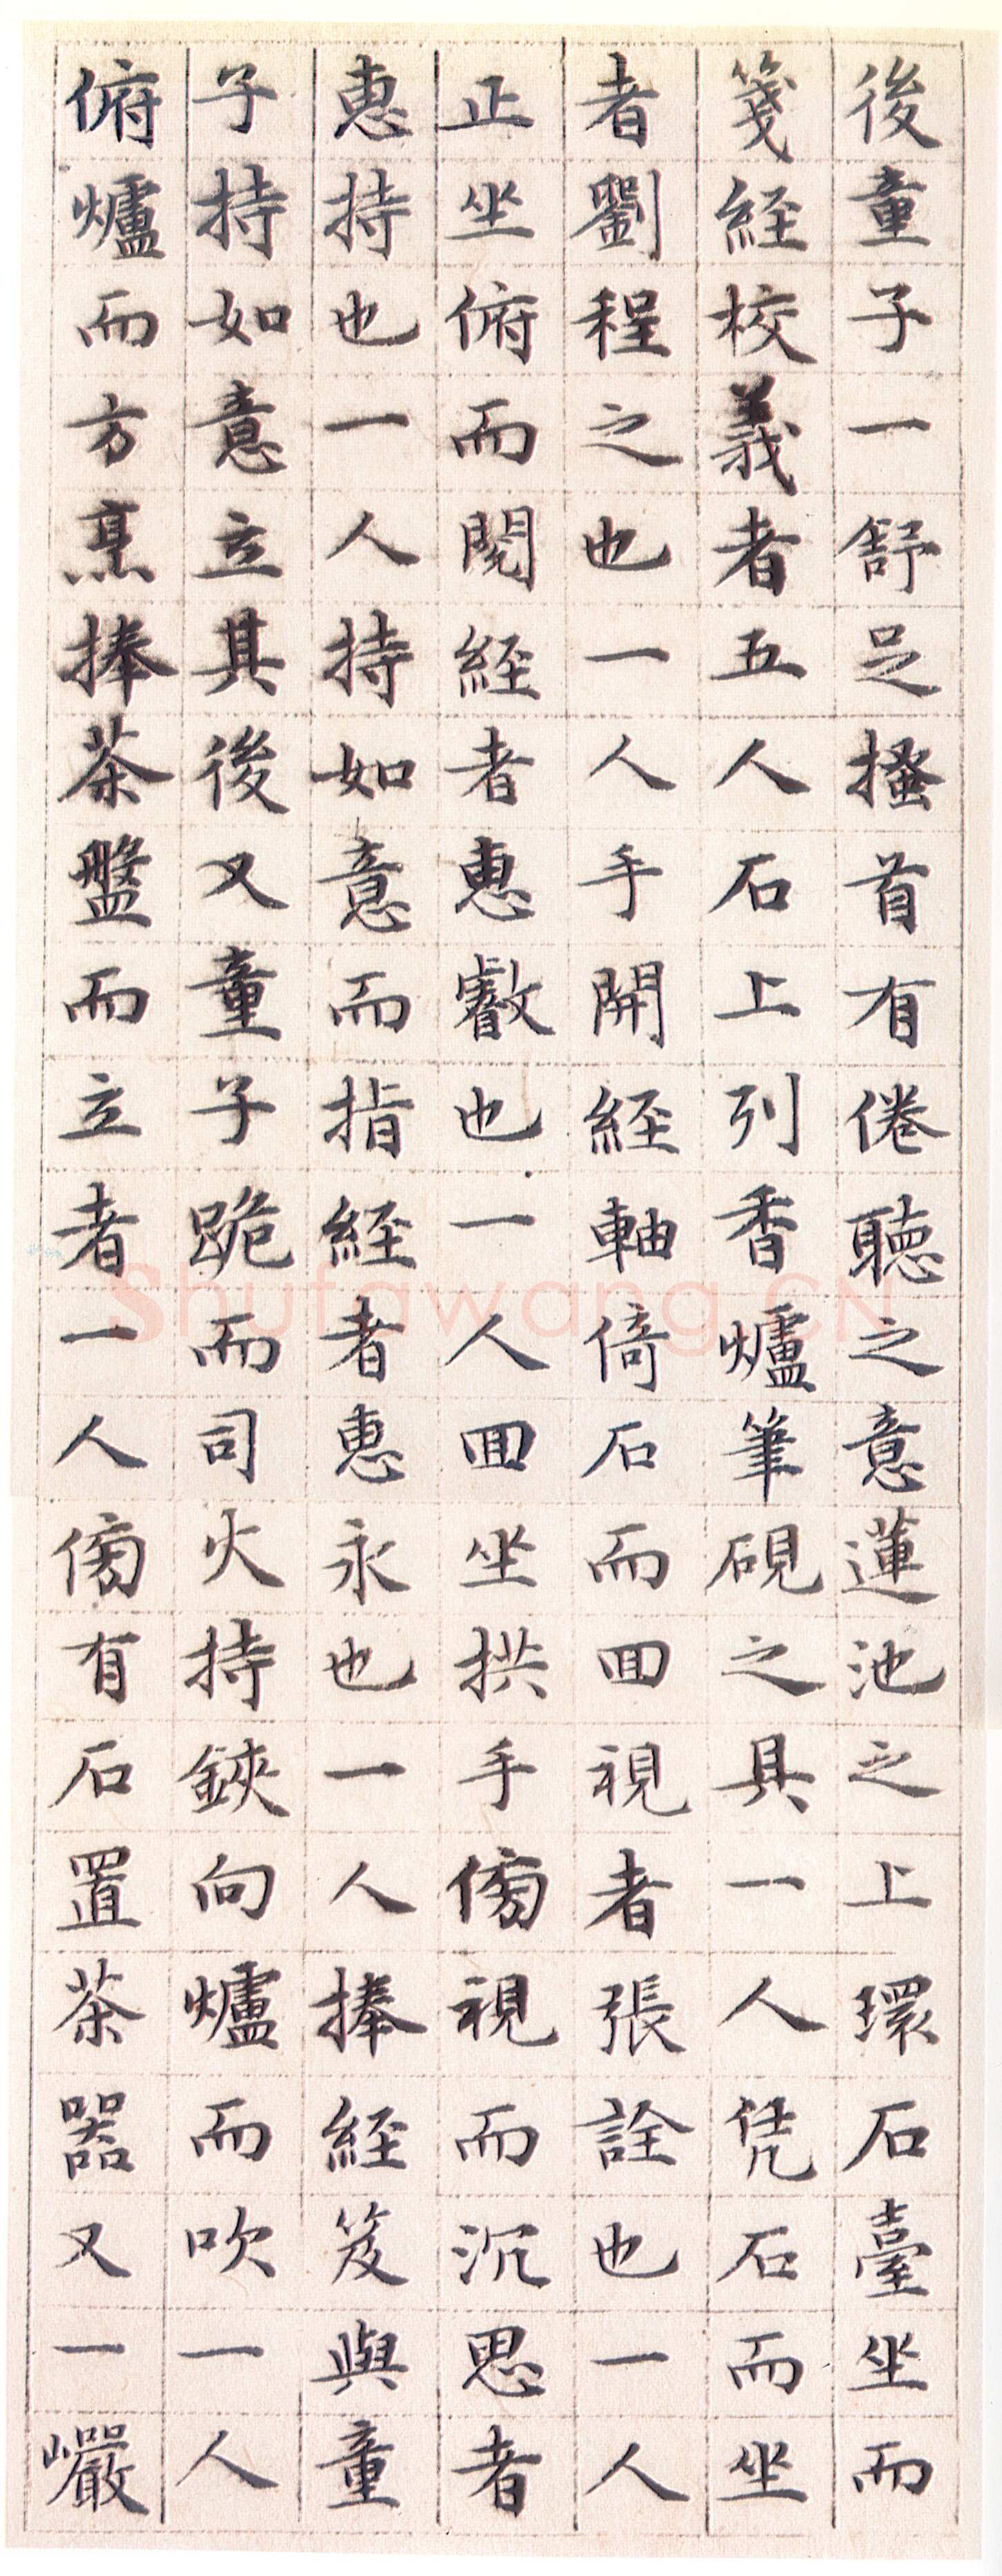 後童子一舒足搔首有倦聽之意蓮池之上環石臺坐而
箋經校義者五人石上列香爐筆硯之具一人凭石而坐
者劉程之也一人手開經軸倚石而回視者張詮也一人
正坐俯而閱經者惠叡也一人回坐拱手傍視而沉思者
惠持也一人持如意而指經者惠永也一人捧經笈與童
子持如意立其後又童子跪而司火持鋏向爐而吹一人
俯爐而方烹捧茶盤而立者一人傍有石置茶器又一巖
Shufawang.CN